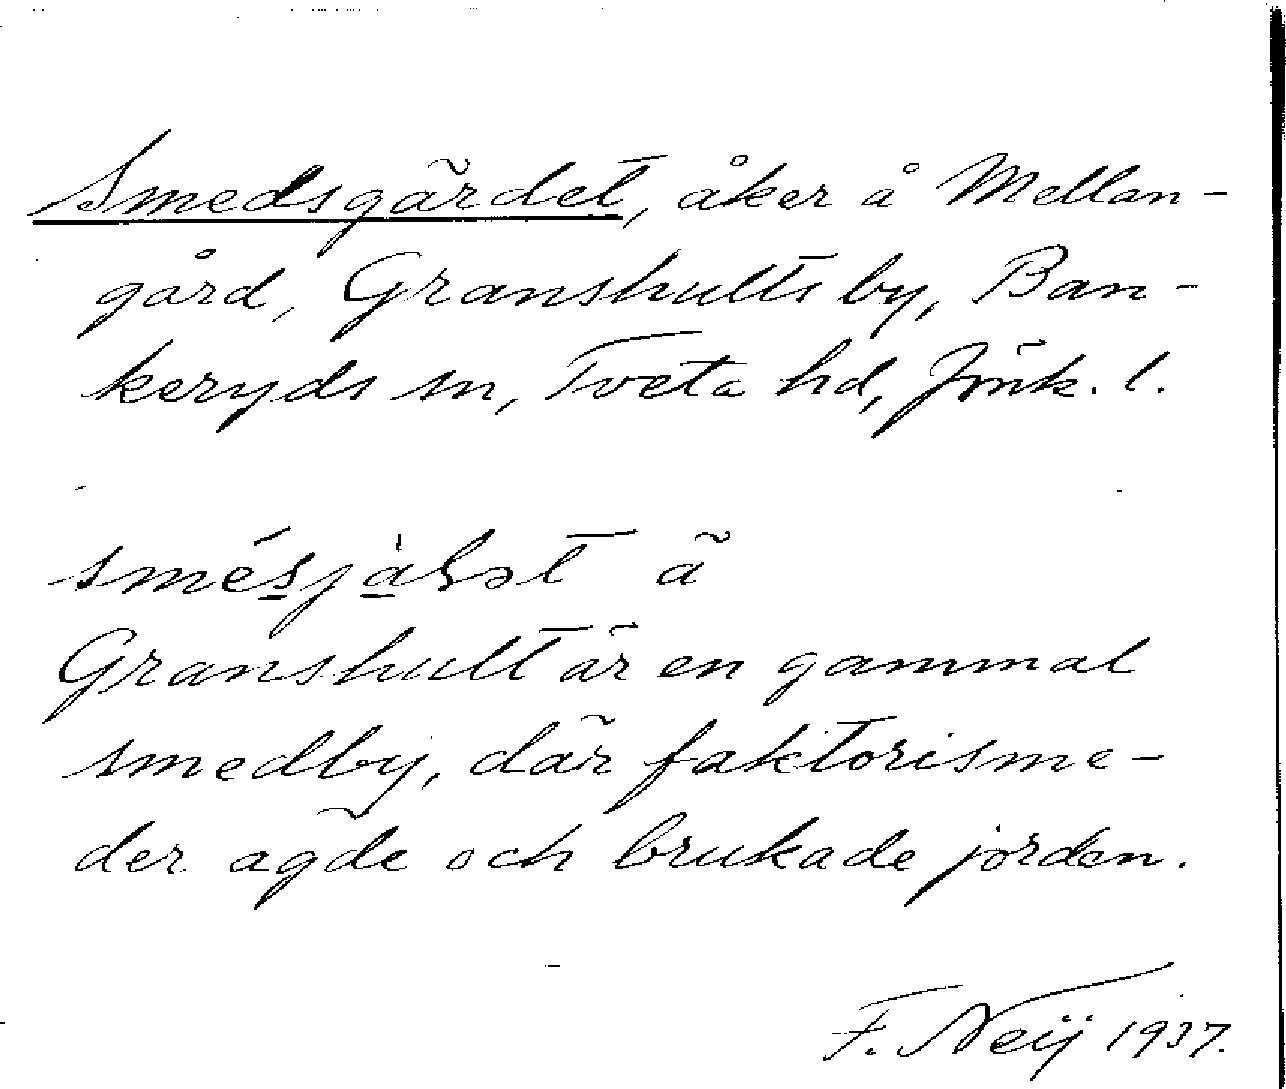 Smedsgärdet, åker å Mellan-
gård, Granshults by, Ban-
keryds sn, Tveta hd, Jönk. l.
ä
Granshult är en gammal
smedby, där faktorisme-
der ägde och brukade jorden.
F. Neij 1937.